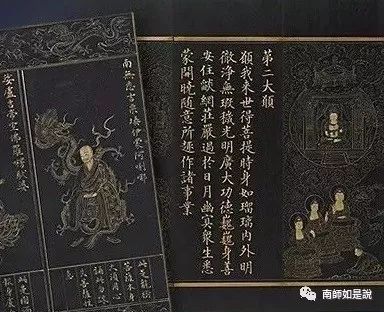 第二大願
願我來世得菩提時身如瑠璃內外明
徹淨無瑕穢光明廣大功德巍巍身善
安住燄網莊嚴過於日月幽冥眾生悉
蒙開曉隨意所趣作諸事業
南無悉吉㗚埵伊蒙阿唎㖿
南師如是說